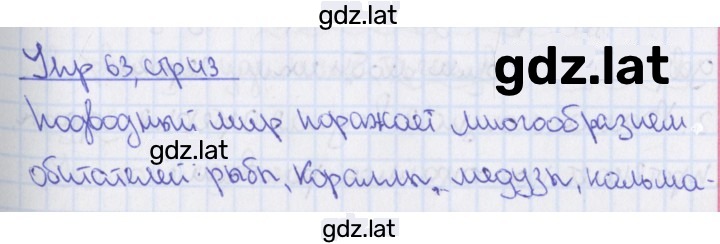 gdz.lat
Упр 63, стр 43
gdz.lat
Подводный мир поражает многообразием
gdz.lat
обитателей рыбы, кораллы, медузы, кальма-
gdz.lat